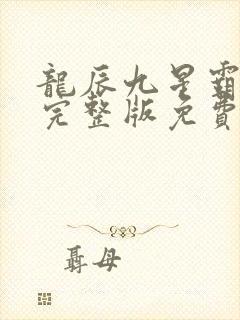 龍辰九星霸
完整版免費
聶母